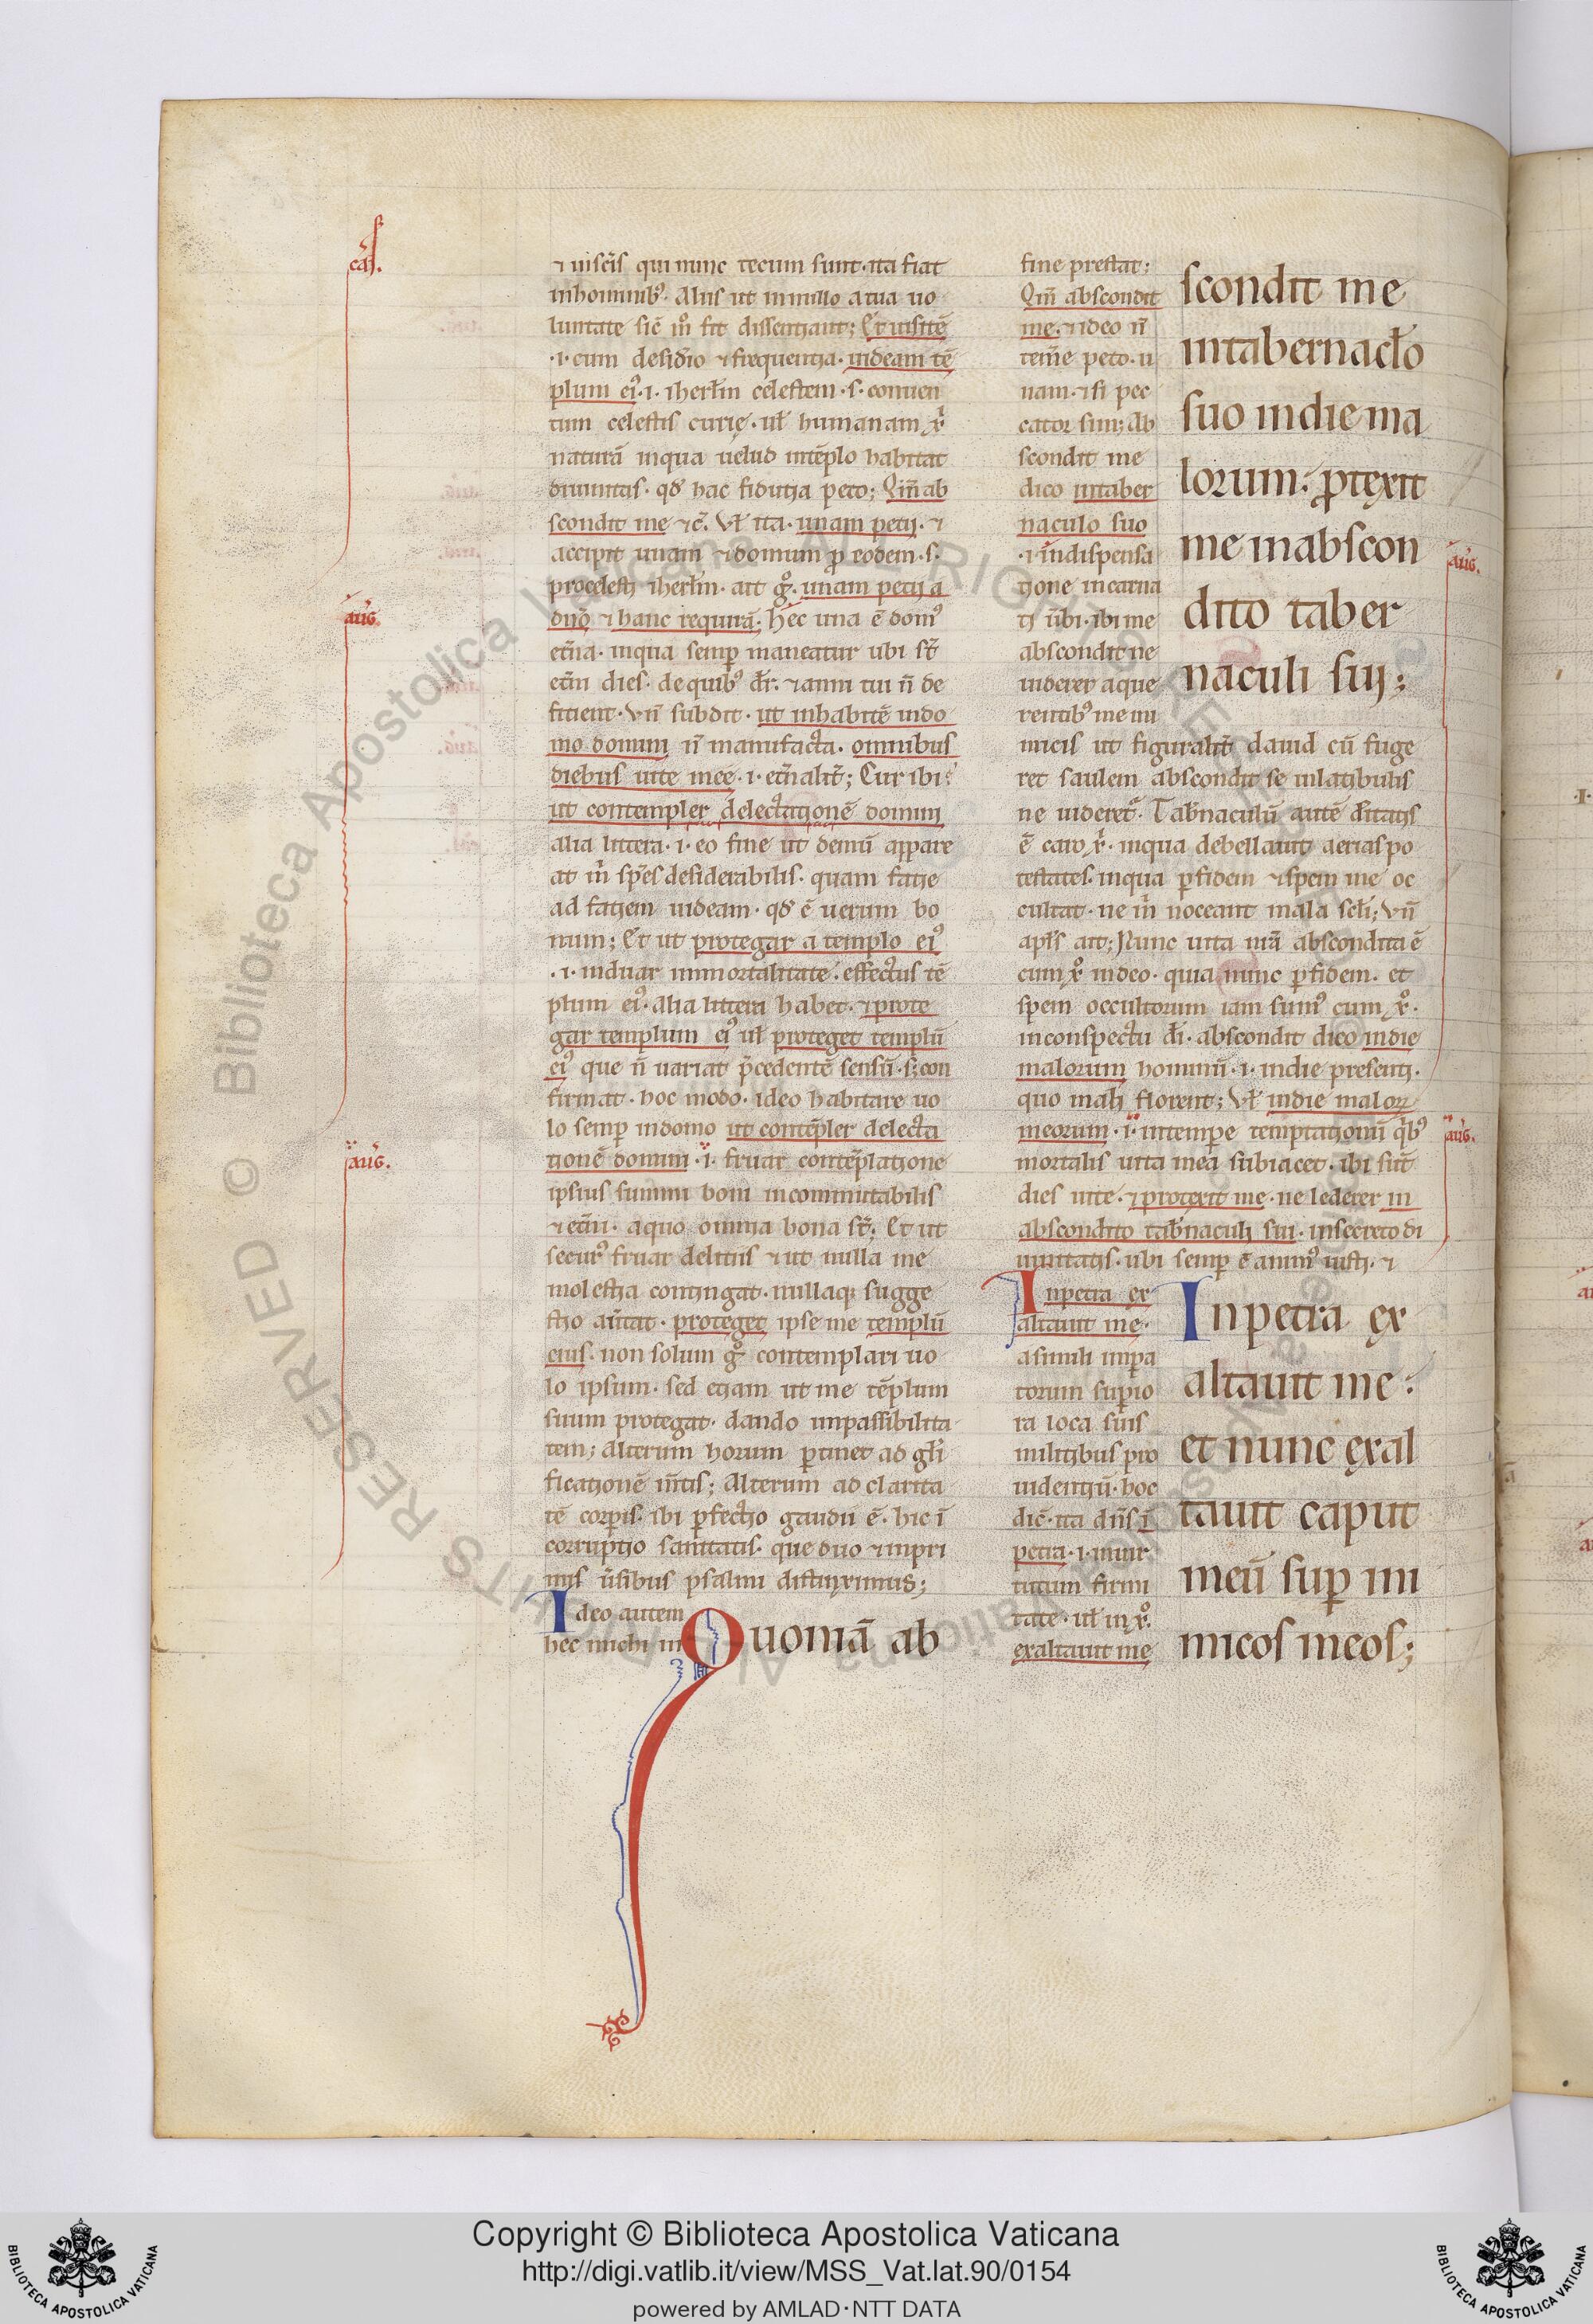 cas.
⁊ uiscĩs qui nunc tecum sunt · ita fiat
in hominibꝰ. Aliis ut in nullo a tua uo
luntate sic̃ m̊ fit dissentiant; Et uisitē
.i. cum desid̃io ⁊ frequentia · uideam tē
plum eiꝰ .i. iherłm celestem · s · conuen
tum celestis curię · uł humanam xp̃i
naturā in qua uelud in tēplo habitat
diuinitas · qđ hac fidutia peto; Qm̄ ab
scondit me ⁊c̃. Vł ita · unam petii · ⁊
accipit unam ⁊ domum ꝓ eodem · s ·
pro celesti iherłm · ait g̊ · unam petii a
dño ⁊ hanc requirā · hec una ē domꝰ
et̃na · in qua semꝑ maneatur ubi st̃
et̃ni dies · de quibꝰ dr̃ · ⁊ anni tui ñ de
fitient · Vñ subdit · ut inhabitē in do
mo domini ñ manufacta · omnibus
diebus uite mee .i. et̃nalit̃; Cur ibi?
ut contempler delectationē domini
alia littera .i. eo fine ut demū appare
at m̃ sp̃es desiderabilis · quam fatie
ad fatiem uideam · qđ ē uerum bo
num; Et ut protegar a templo eiꝰ
.i. induar inmortalitate · effectus tē
plum eiꝰ · alia littera habet · ⁊ prote
gar templum eiꝰ uł proteget templū
eiꝰ que ñ uariat p̃cedentē sensū · s; con
firmat · hoc modo · ideo habitare uo
lo semꝑ in domo ut contēpler delecta
tionē domini .i. fruar contēplatione
ipsius summi boni incommutabilis
⁊ et̃ni · a quo omnia bona st̃; Et ut
securꝰ fruar delitiis ⁊ ut nulla me
molestia contingat · nullaq; sugge
stio aũtat · proteget ipse me templū
eius · non solum g̊ contemplari uo
lo ipsum · sed etiam ut me tēplum
suum protegat · dando inpassibilita
tem; Alterum horum ꝑtinet ad głi
ficationē m̃tis; Alterum ad clarita
tē corꝑis · ibi ꝑfectio gaudii ē · hic ī
corruptio sanitatis · que duo ⁊ in pri
mis ũsibus psalmi distinximus;
Ideo autem
hec michi in
Quoniā ab
aug.
aug.
fine prestat;
Qm̄ abscondit
me · ⁊ ideo ñ
tem̃e peto · u
nam · ⁊ si pec
cator sum; Ab
scondit me
dico in taber
naculo suo
.i. in dispensa
tione incarna
ti ũbi · ibi me
abscondit ne
uiderer a que
rentibꝰ me ini
micis ut figuralit̃ dauid cū fuge
ret saulem abscondit se in latibulis
ne uideret᷑. Tab̃naculū autē đitatis
ē caro xp̃i · in qua debellauit aerias po
testates · in qua ꝑ fidem ⁊ spem me oc
cultat · ne m̃ noceant mala sc̃li; Vñ
apl̃s ait; Nunc uita ur̃a abscondita ē
cum xp̊ in deo · quia nunc ꝑ fidem · et
spem occultorum iam sumꝰ cum xp̊ ·
in conspectu đi · abscondit dico in die
malorum hominū .i. in die presenti ·
quo mali florent; Vł in die maloꝝ
meorum .i. in tempe temptationū q̃bꝰ
mortalis uita mea subiacet · ibi sūt
dies uite · ⁊ protexit me · ne lederer in
abscondito tab̃naculi sui · in secreto di
uinitatis · ubi semꝑ ē animꝰ iusti · ⁊
In petra ex
altauit me ·
a simili inꝑa
torum suꝑio
ra loca suis
militibus pro
uidentiū · hoc
dic̃ · ita dñs ī
petra .i. in uir
tutum firmi
tate · uł in xp̊ ·
exaltauit me
scondit me
in tabernacło
suo in die ma
lorum: ꝓtexit
me in abscon
dito taber
naculi sui;
In petra ex
altauit me:
et nunc exal
tauit caput
meū suꝑ ini
micos meos;
aug.
aug.
Copyright © Biblioteca Apostolica Vaticana
http://digi.vatlib.it/view/MSS_Vat.lat.90/0154
powered by AMLAD·NTT DATA
BIBLIOTECA APOSTOLICA VATICANA
BIBLIOTECA APOSTOLICA VATICANA